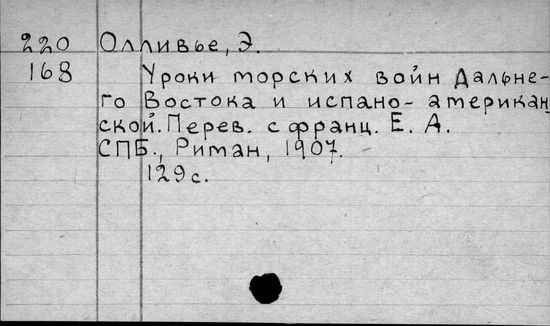 220 Олливье, Э.
168 Уроки морских войн Дальне-
го Востока и испано-американ
ской. Перев. с франц. Е. А.
СПБ., Риман, 1907.
129 с.